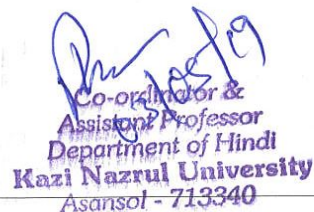 Co-ordinator &
Assistant Professor
Department of Hindi
Kazi Nazrul University
Asansol - 713340